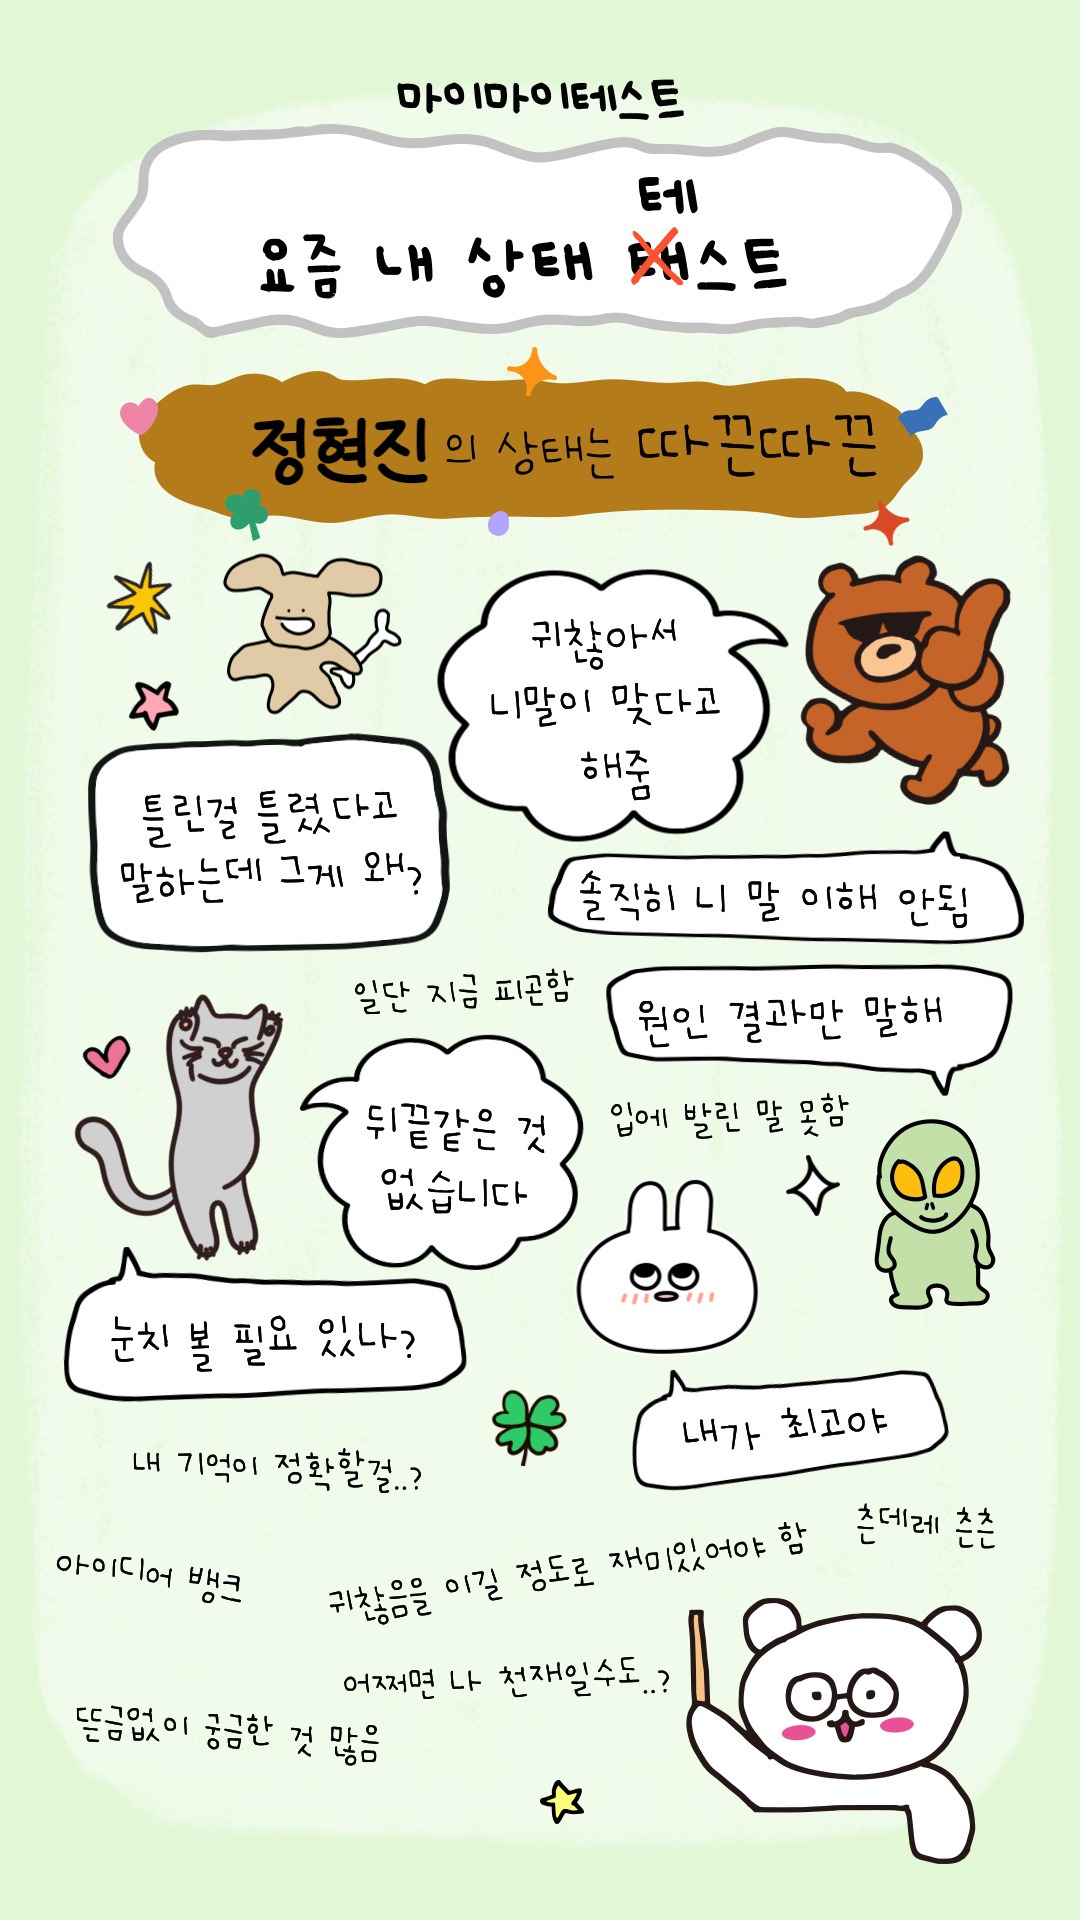 마이마이테스트
테
요즘 내 상태 태스트
정현진의 상태는 따끈따끈
귀찮아서
니말이 맞다고
해줌
틀린걸 틀렸다고
말하는데 그게 왜?
솔직히 니 말 이해 안됨
일단 지금 피곤함
원인 결과만 말해
뒤끝같은 것
없습니다
입에 발린 말 못함
눈치 볼 필요 있나?
내가 최고야
내 기억이 정확할걸..?
츤데레 츤츤
아이디어 뱅크
귀찮음을 이길 정도로 재미있어야 함
어쩌면 나 천재일수도..?
뜬금없이 궁금한 것 많음